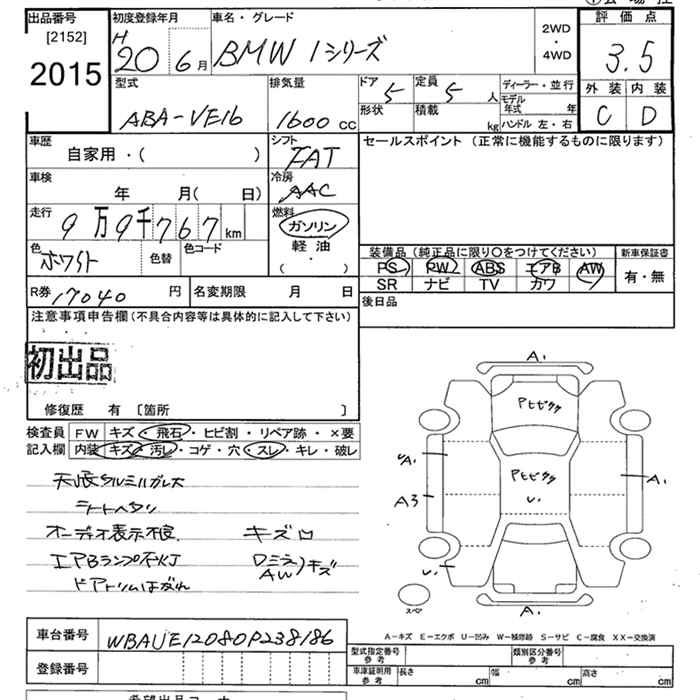 出品番号
[2152]
2015
初度登録年月
H 20 6月
車名・グレード
BMW 1シリーズ
2WD
・
4WD
評価点
3.5
型式
ABA-VE16
排気量
1600 cc
ドア 5
定員 5 人
形状
積載 kg
ディーラー・並行
モデル年式 年
ハンドル 左・右
外装 内装
C D
車歴
自家用・( )
シフト
FAT
セールスポイント (正常に機能するものに限ります)
車検
年 月( 日)
冷房
AAC
走行
9万9千767km
燃料
ガソリン
軽油
( ・ )
色
ホワイト
色替
色コード
装備品 (純正品に限り○をつけてください)
新車保証書
PS PW ABS エアB AW
SR ナビ TV カワ
有・無
R券 17040 円
名変期限 月 日
後日品
注意事項申告欄(不具合内容等は具体的に記入して下さい)
初出品
修復歴 有 [箇所 ]
検査員
記入欄
FW キズ・飛石・ヒビ割・リペア跡・×要
内装 キズ・汚レ・コゲ・穴・スレ・キレ・破レ
シートヘタリ
オーディオ表示不良
キズ凹
エアBランプ不灯
Dミラ
AW
キズ
ドアトリムはがれ
A1
Pヒビワク
A1
Pヒビワク
U1
A1
A3
U1
スペア
A1
A-キズ E-エクボ U-凹み W-補修跡 S-サビ C-腐食 XX-交換済
車台番号
WBAUE12080P238186
登録番号
型式指定番号
参考
類別区分番号
参考
車庫証明用
参考
長さ cm
幅 cm
高さ cm